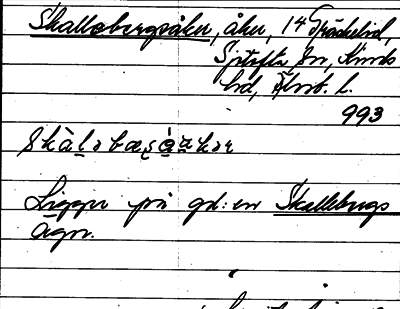 Skallebergsåker, åker, 14 Träskelid,
Sjötofta sn, Kinds
hd, Älvsb. l.
993
Ligger på gd:en Skallebergs
ägor.